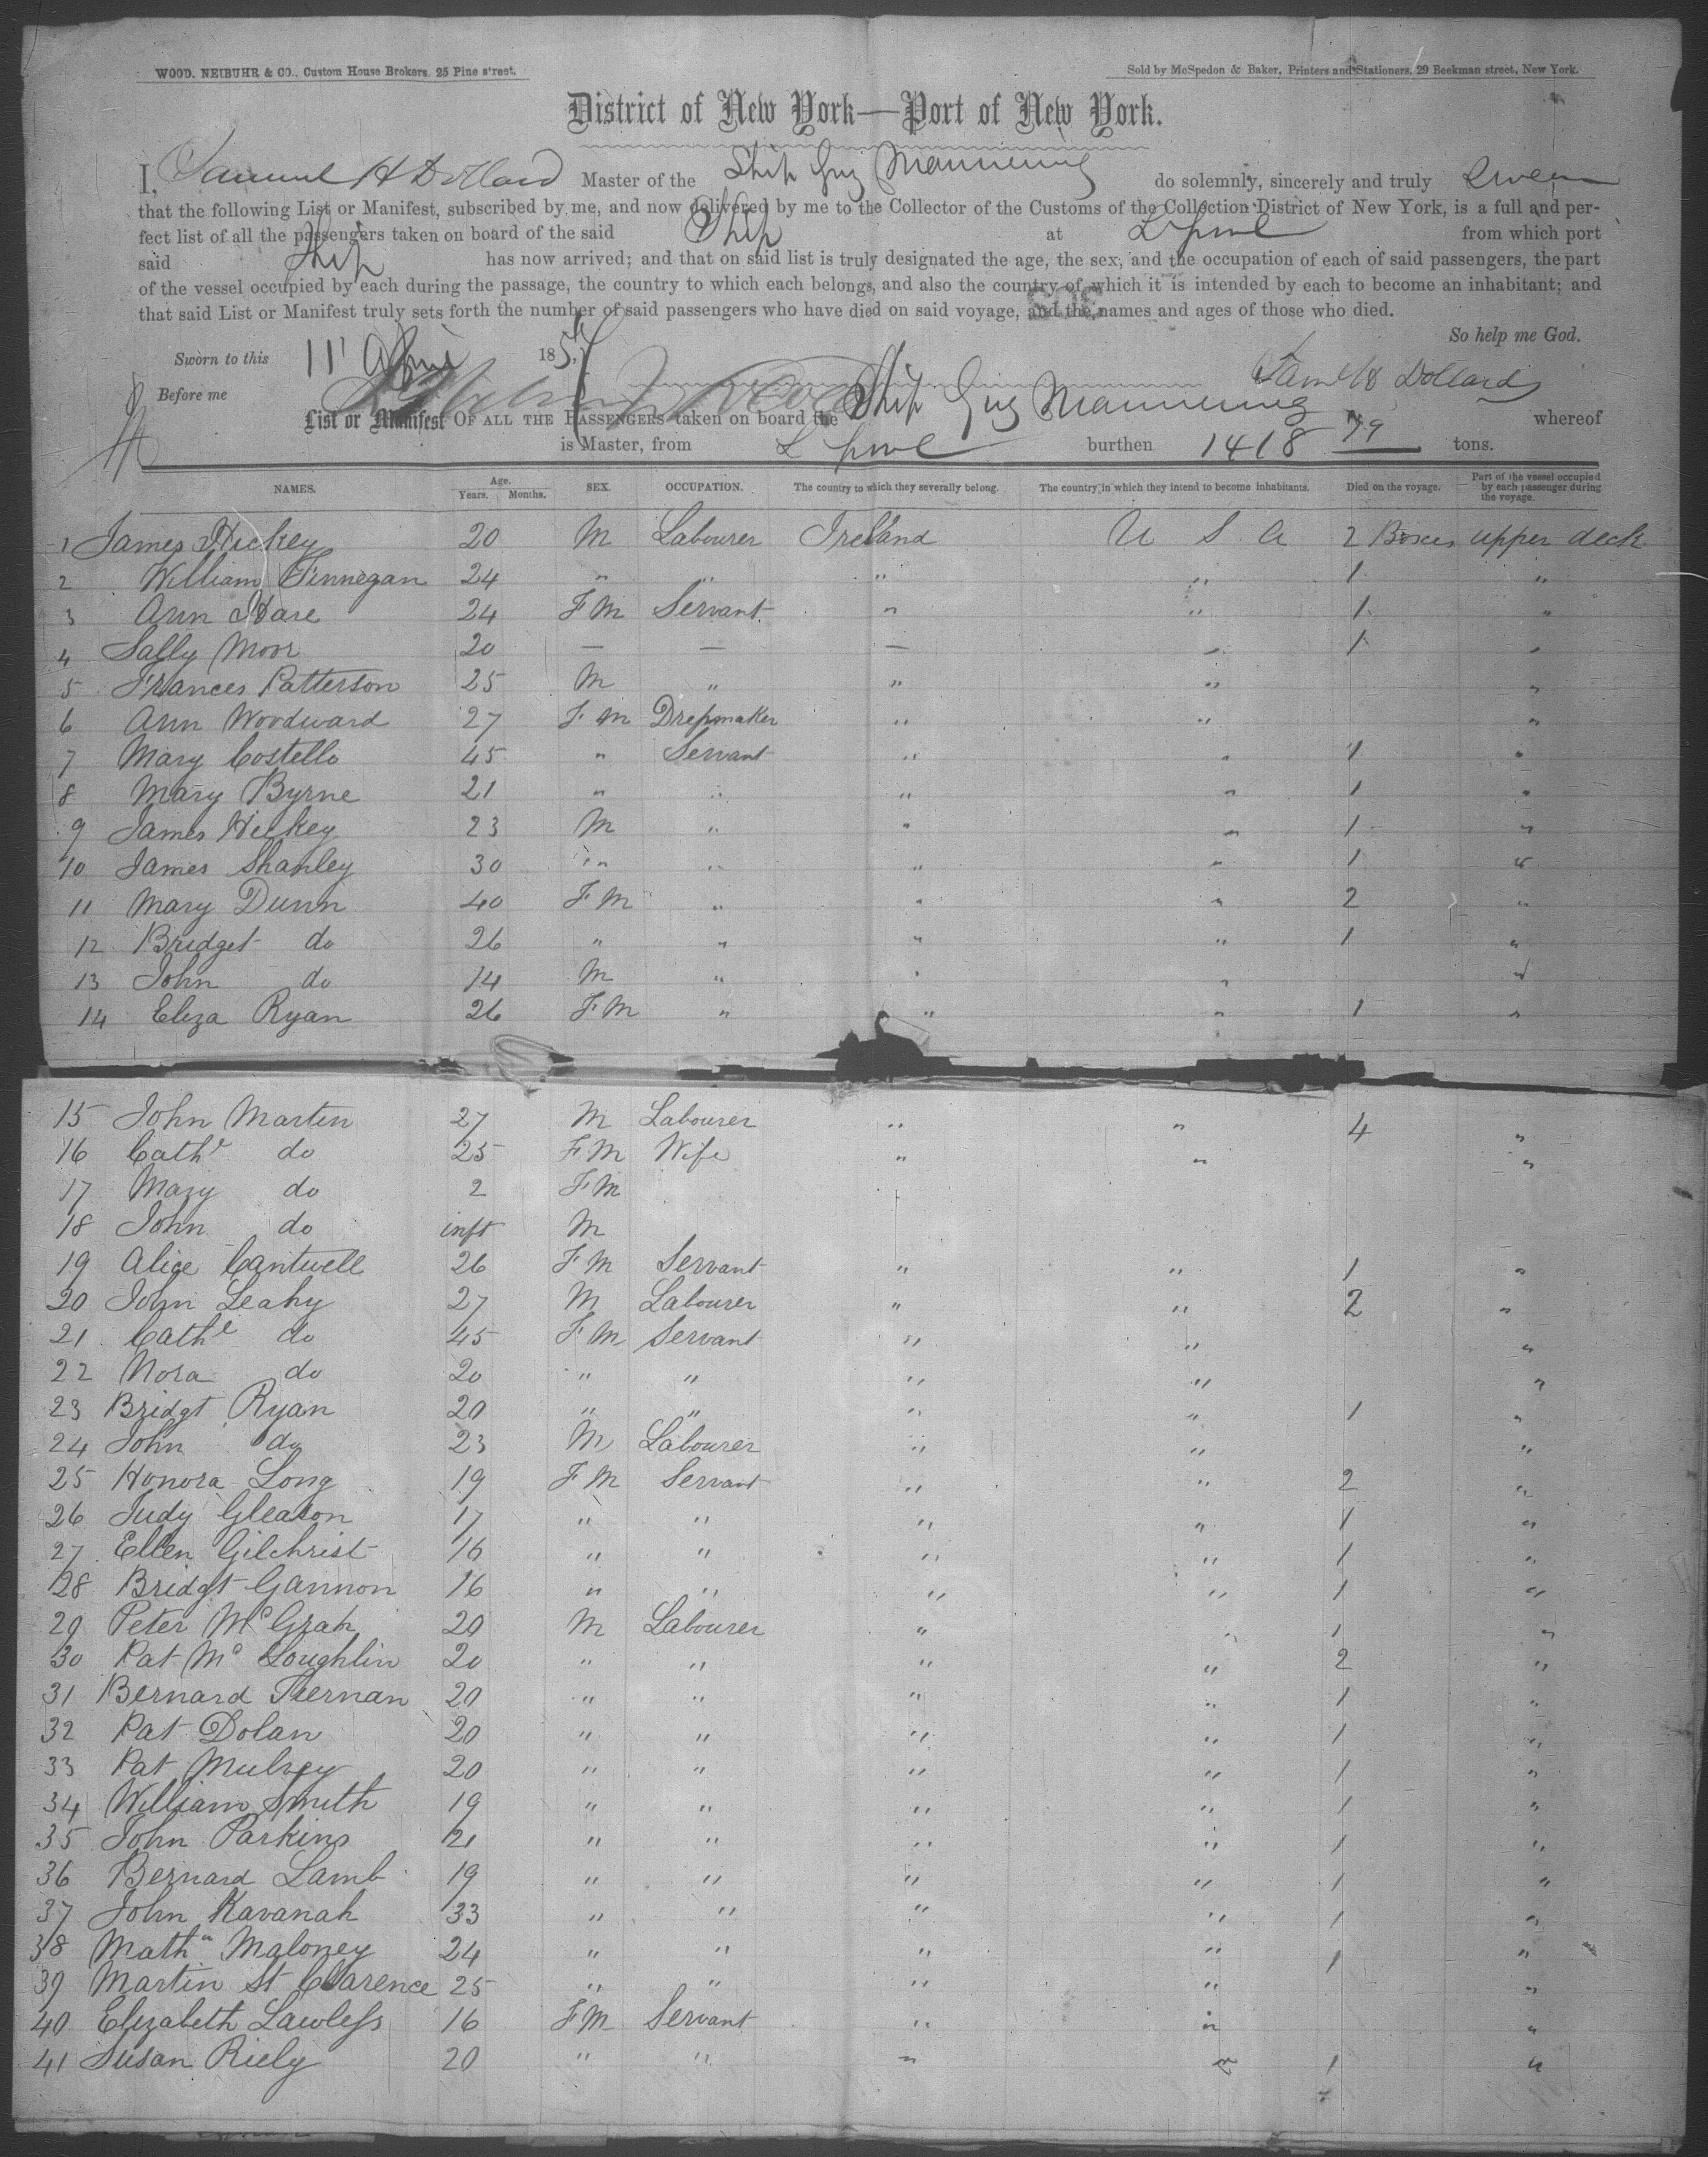 WOOD, NEIBUHR & CO., Custom House Brokers, 25 Pine street.
Sold by McSpedon & Baker, Printers and Stationers, 29 Beekman street, New York.
District of New York—Port of New York.
I, Samuel H Dollard Master of the Ship Guy Mannering do solemnly, sincerely and truly swear
that the following List or Manifest, subscribed by me, and now delivered by me to the Collector of the Customs of the Collection District of New York, is a full and per-
fect list of all the passengers taken on board of the said Ship at L'pool from which port
said Ship has now arrived; and that on said list is truly designated the age, the sex, and the occupation of each of said passengers, the part
of the vessel occupied by each during the passage, the country to which each belongs, and also the country of which it is intended by each to become an inhabitant; and
that said List or Manifest truly sets forth the number of said passengers who have died on said voyage, and the names and ages of those who died.
So help me God.
Sworn to this 11 April 185
Saml H Dollard
Before me
List or Manifest OF ALL THE PASSENGERS taken on board the Ship Guy Mannering whereof
is Master, from L'pool burthen 1418 79 tons.
NAMES. Age. Years. Months. SEX. OCCUPATION. The country to which they severally belong. The country in which they intend to become inhabitants. Died on the voyage. Part of the vessel occupied by each passenger during the voyage.
1 James Hickey 20 M Labourer Ireland U S A 2 Boxes upper deck
2 William Finnegan 24 " " " " 1 "
3 Ann Hare 24 F M Servant " " 1 "
4 Sally Moor 20 — — — " 1 "
5 Frances Patterson 25 M " " " "
6 Ann Woodward 27 F M Dressmaker " " "
7 Mary Costello 45 " Servant " " 1 "
8 Mary Byrne 21 " " " " 1 "
9 James Hickey 23 M " " " 1 "
10 James Shanley 30 " " " " 1 "
11 Mary Dunn 40 F M " " " 2 "
12 Bridget do 26 " " " " 1 "
13 John do 14 M " " " "
14 Eliza Ryan 26 F M " " " 1 "
15 John Martin 27 M Labourer " " 4 "
16 Cathe do 25 F M Wife " " "
17 Mary do 2 F M
18 John do inft M
19 Alice Cantwell 26 F M Servant " " 1 "
20 John Leahy 27 M Labourer " " 2 "
21 Cathe do 45 F M Servant " " "
22 Nora do 20 " " " " "
23 Bridgt Ryan 20 " " " " 1 "
24 John do 23 M Labourer " " "
25 Honora Long 19 F M Servant " " 2 "
26 Judy Gleason 17 " " " " 1 "
27 Ellen Gilchrist 16 " " " " 1 "
28 Bridgt Gannon 16 " " " " 1 "
29 Peter McGrah 20 M Labourer " " 1 "
30 Pat McLoughlin 20 " " " " 2 "
31 Bernard Tiernan 20 " " " " 1 "
32 Pat Dolan 20 " " " " 1 "
33 Pat Mulvey 20 " " " " 1 "
34 William Smith 19 " " " " 1 "
35 John Parkins 21 " " " " 1 "
36 Bernard Lamb 19 " " " " 1 "
37 John Kavanah 33 " " " " 1 "
38 Mathw Maloney 24 " " " " 1 "
39 Martin St Clarence 25 " " " " "
40 Elizabeth Lawless 16 F M Servant " " "
41 Susan Riely 20 " " " " 1 "